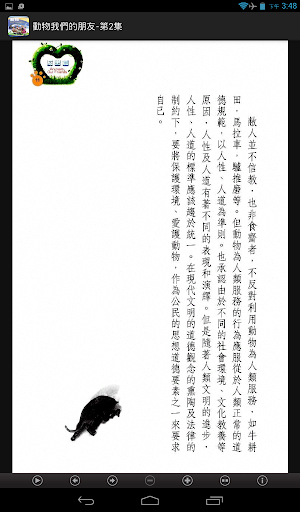 3:48
動物我們的朋友-第2集
敝人並不信教，也非食齋者，不反對利用動物為人類服務，如牛耕
田，馬拉車，驢推磨等。但動物為人類服務的行為應服從於人類正常的道
德規範，以人性、人道為準則。也承認由於不同的社會環境、文化教養等
原因，人性及人道有著不同的表現和演繹。但是隨著人類文明的進步，
人性、人道的標準應該趨於統一。在現代文明的道德觀念的熏陶及法律的
制約下，要將保護環境、愛護動物，作為公民的思想道德要素之一來要求
自己。